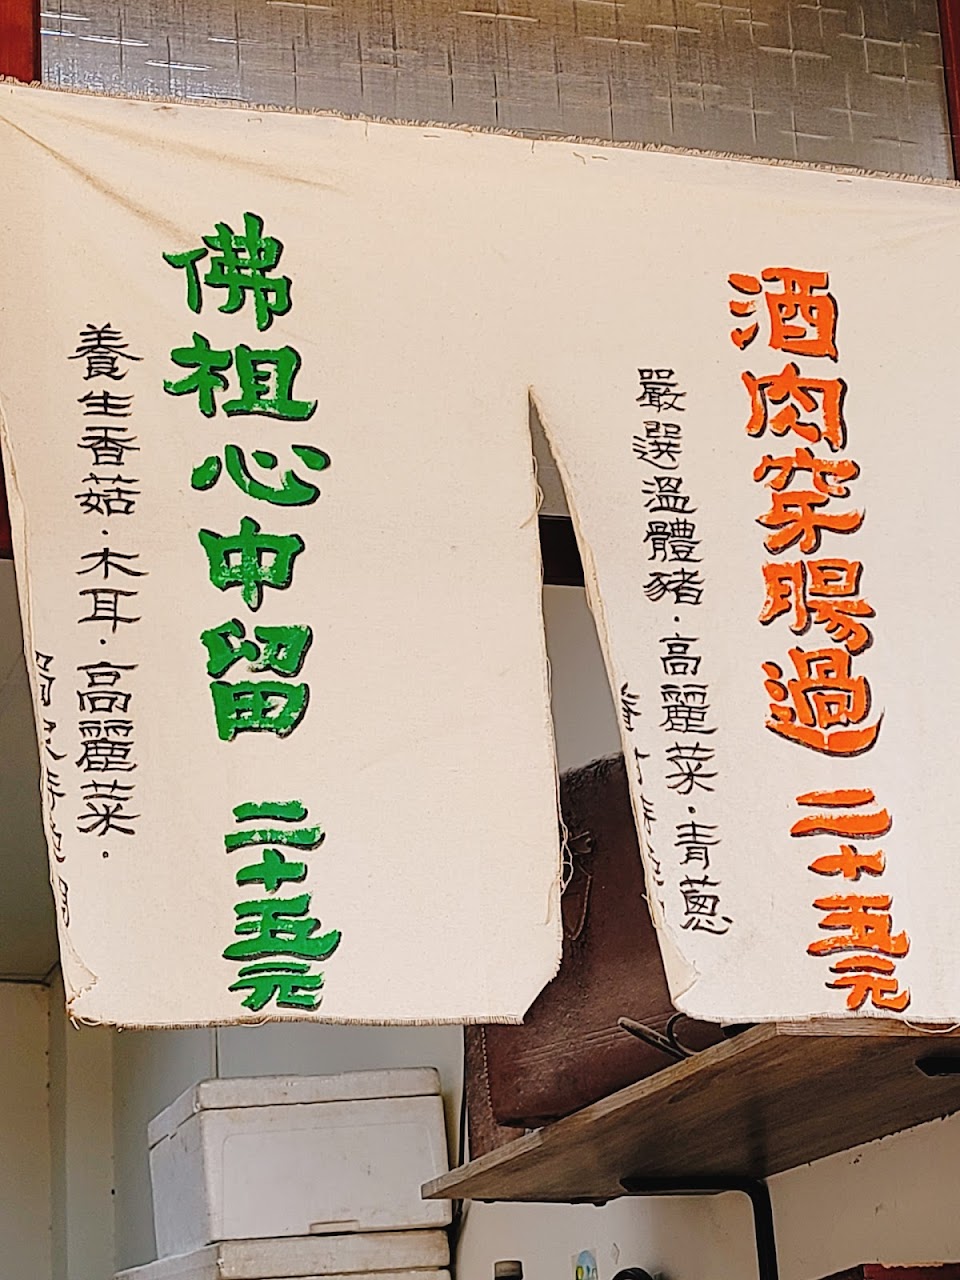 酒肉穿腸過 二十五元
嚴選溫體豬．高麗菜．青蔥
佛祖心中留 二十五元
養生香菇．木耳．高麗菜．